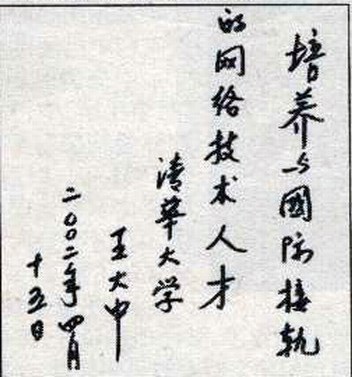 培养与國际接軌
的网络技术人才
清華大学
王大中
二〇〇二年四月
十五日